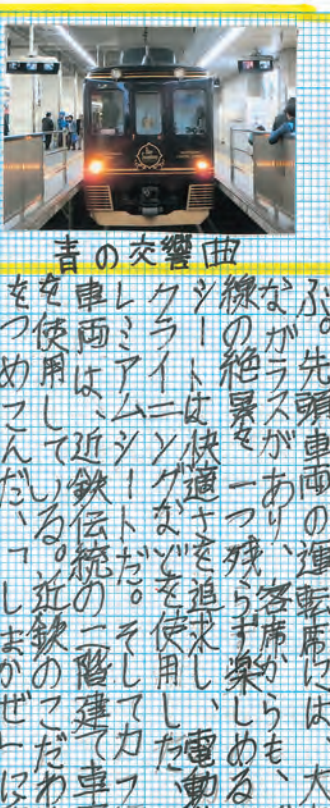 青の交響曲
ぶ。先頭車両の運転席には、大
なガラスがあり、客席からも、
線の絶景を一つ残らず楽しめる
シートは快適さを追求し、電動
クライニングなどを使用した、
レミアムシートだ。そしてカフ
車両は、近鉄伝統の二階建て車
を使用している。近鉄のこだわ
をつめこんだ、「しまかぜ」に